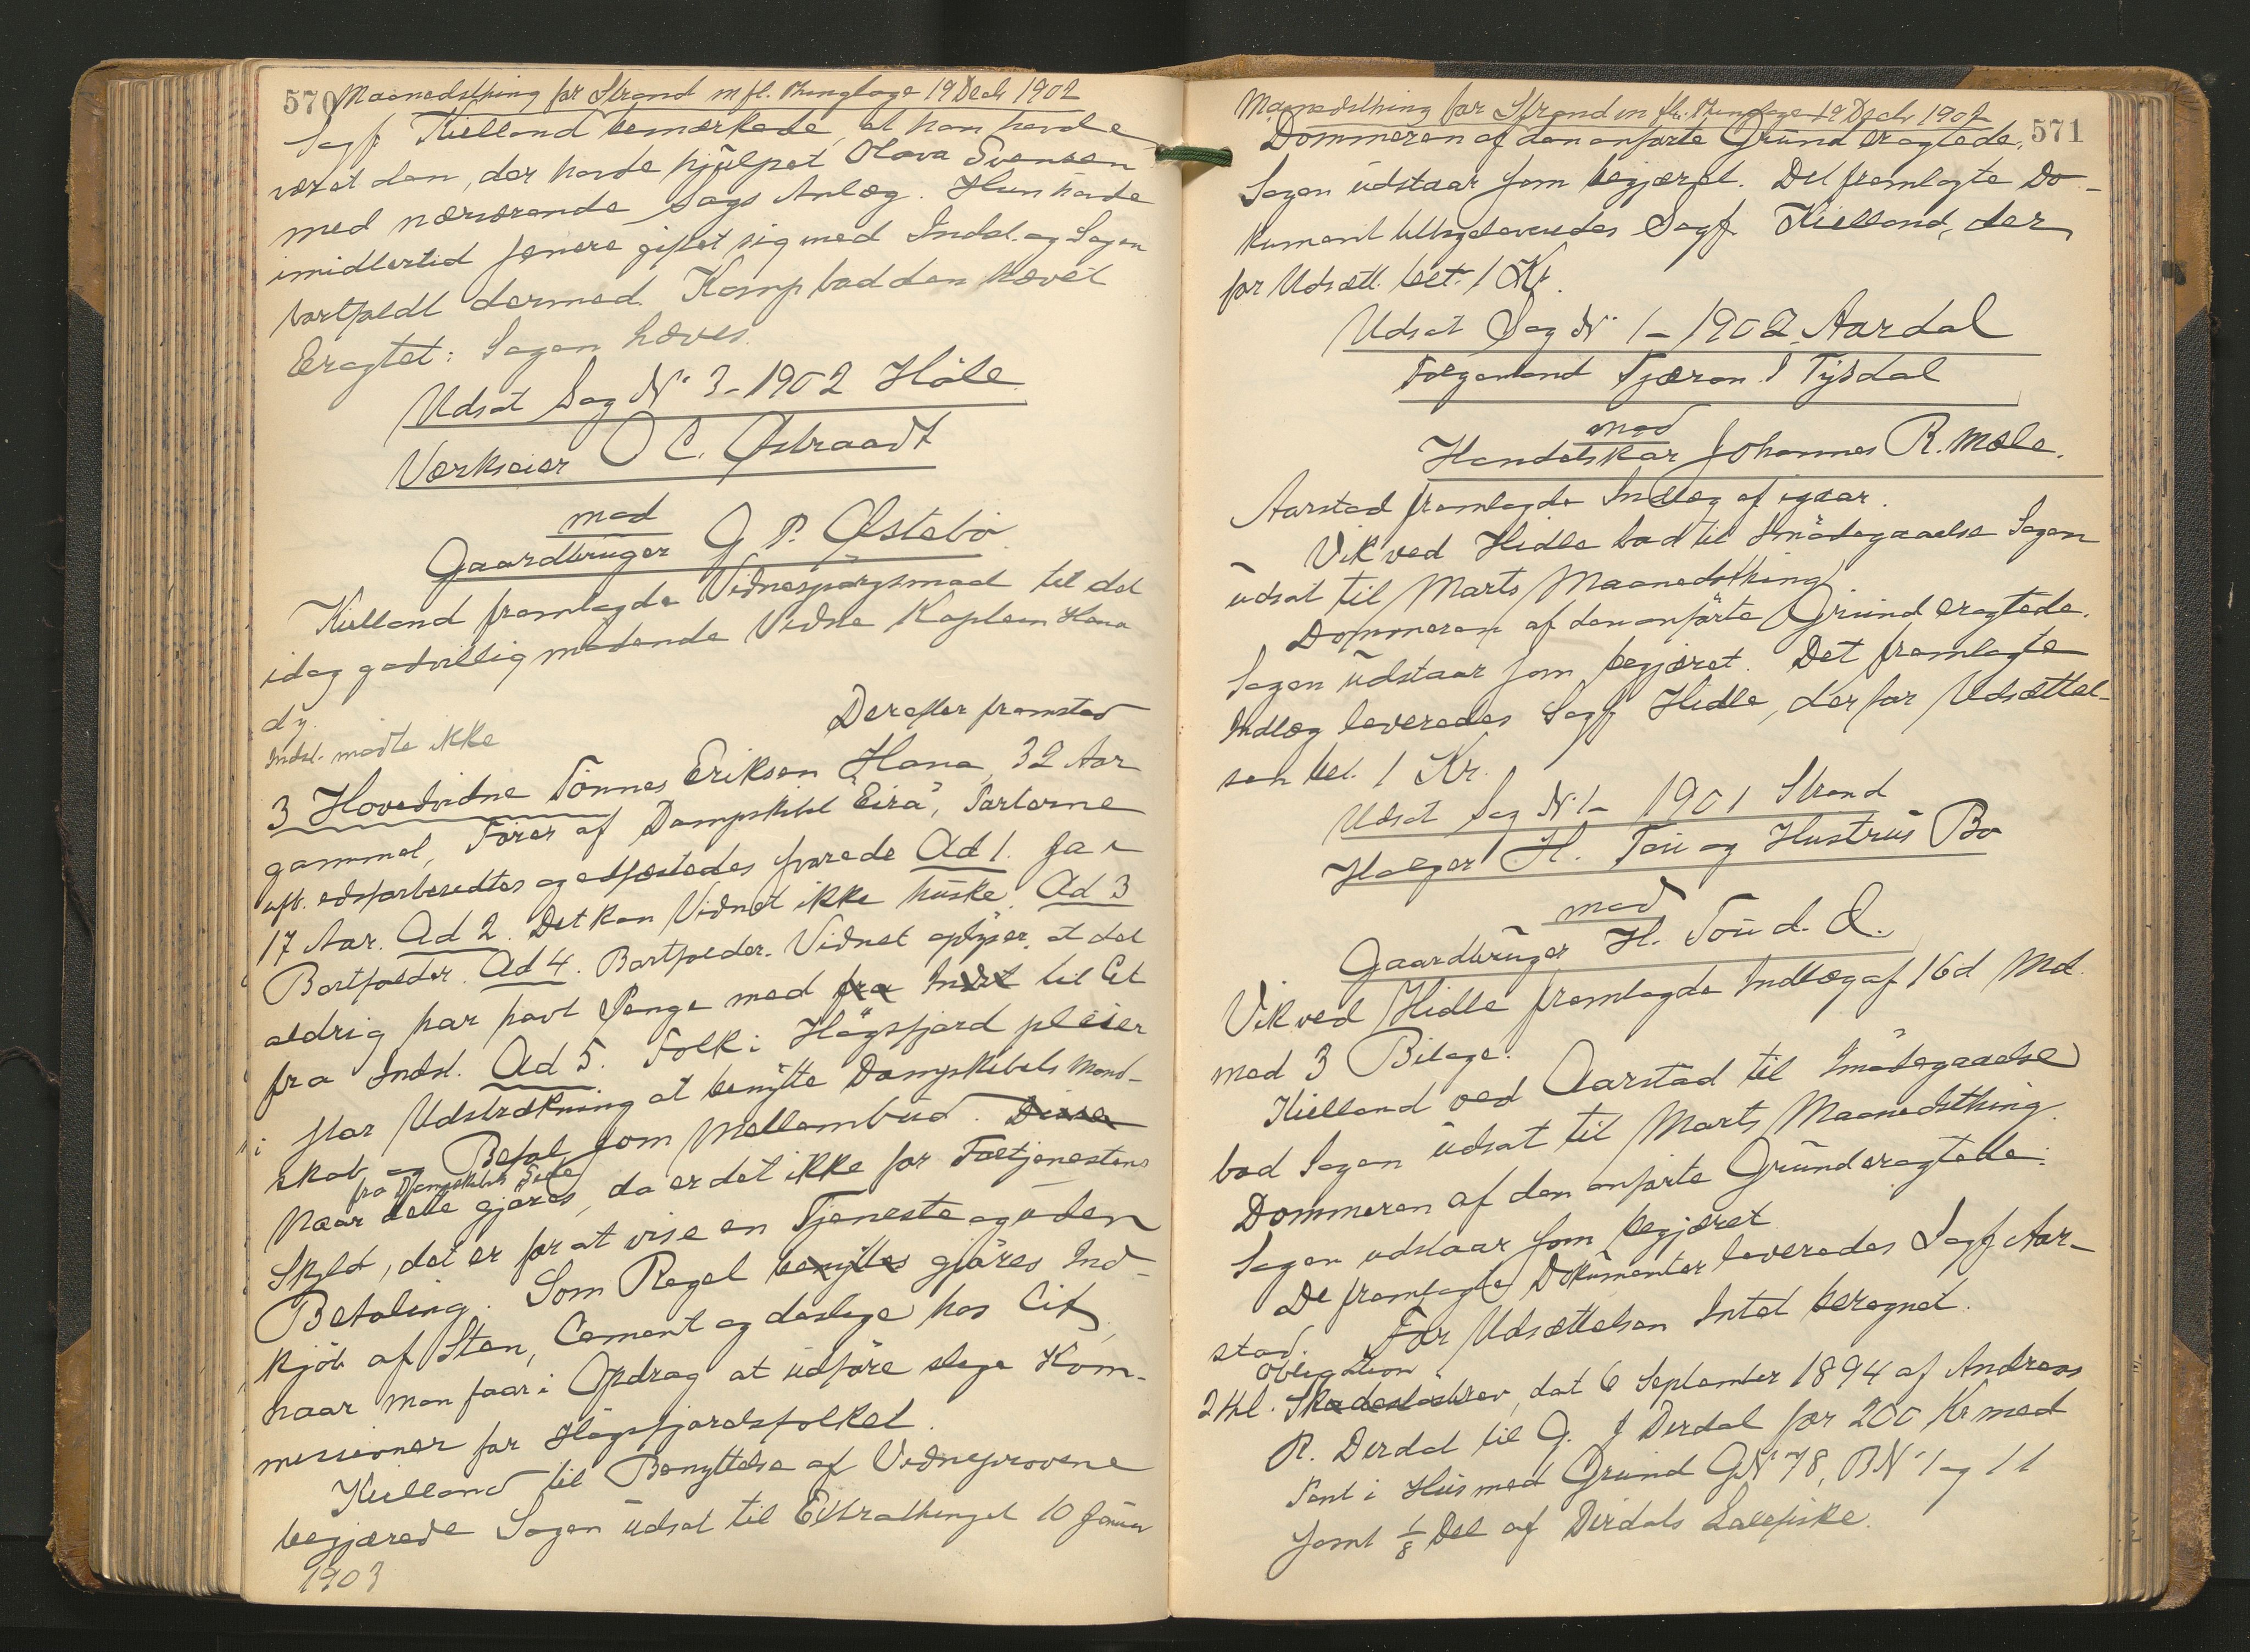 570 Maanedsthing for Strand m fl. Thinglage 19 Decb 1902
Sagf Kielland bemærkede, at han havde
været den, der havde hjülpet Olava Svensen
med nærværende Sags Anlæg. Hun havde
imidlertid senere giftet sig med Indst. og Sagen
bortfaldt dermed. Komp bad den hævet
Eragtet: Sagen hæves.
Udsat Sag No 3 - 1902 Höle
Værkseier O C. Østraadt
mod
Gaardbruger G P. Østebö
Kielland fremlagde Vidnespörgsmaal til det
idag godvillig mødende Vidne Kaptein Hana
dy.
Derefter fremstod
Indst. mødte ikke
3 Hovedvidne Tönnes Eriksen Hana, 32 Aar
gammel, Förer af Dampskibet "Eira", Parterne
uft. edsforberedtes og edfæstedes svarede Ad 1. Ja i
17 Aar. Ad 2. Det kan Vidnet ikke huske. Ad 3
Bortfalder. Ad 4. Bortfalder. Vidnet oplyser, at det
aldrig har havt Penge med fra Indst til Cit
fra Indst. Ad 5. Folk i Högsfjord pleier
i stor Udstrækning at benytte Dampskibets Mand-
skab og Befal som Mellembud. Disse
fra Dampskibets Side
Naar dette gjöres, da er det ikke for Fortjenestens
Skyld, det er for at vise en Tjeneste og uden
Betaling. Som Regel benyttes gjöres Ind-
kjöb af Sten, Cement og deslige hos Cit,
naar man faar i Opdrag at udföre slige Kom-
missioner for Högsfjordsfolket.
Kielland til Benyttelse af Vidneprovene
begjærede Sagen udsat til Extrathinget 10 Januar
1903
Maanedsthing for Strand m fl. Thinglage 19 Decb 1902
571
Dommeren af den anførte Grund eragtede,
Sagen udstaar som begjæret. Det fremlagte Do-
kument tilbageleveredes Sagf. Kielland, der
for Udsætt. bet. 1 Kr.
Udsat Sag No 1 - 1902 Aardal
Følgemand Tjæran S Tysdal
mod
Handelskar Johannes R. Mæle.
Aarstad fremlagde Indlæg af igaar.
Vik ved Hidle bad til Imödegaaelse Sagen
udsat til Marts Maanedsthing.
Dommeren af den anförte Grund eragtede.
Sagen udstaar som begjæret. Det fremlagte
Indlæg leveredes Sagf Hidle, der for Udsættel-
sen bet. 1 Kr.
Udsat Sag No 1 - 1901 Strand
Holger H. Tou og Hustrus Bo
mod
Gaardbruger H. Tou d. Æ.
Vik ved Hidle fremlagde Indlæg af 16 d Md.
med 3 Bilage.
Kielland ved Aarstad til Imödegaaelse
bad Sagen udsat til Marts Maanedsthing.
Dommeren af den anförte Grund eragtede:
Sagen udstaar som begjæret
De fremlagte Dokumenter leveredes Sagf Aar-
stad. For Udsættelsen Intet beregnet.
Obligation
2 thl. Skadeslösbrev, dat 6 September 1894 af Andreas
R. Dirdal til G. J Dirdal for 200 Kr med
Pant i Hus med Grund GNo 78, BNo 1 og 11
samt 1/8 Del af Dirdals Laxefiske.